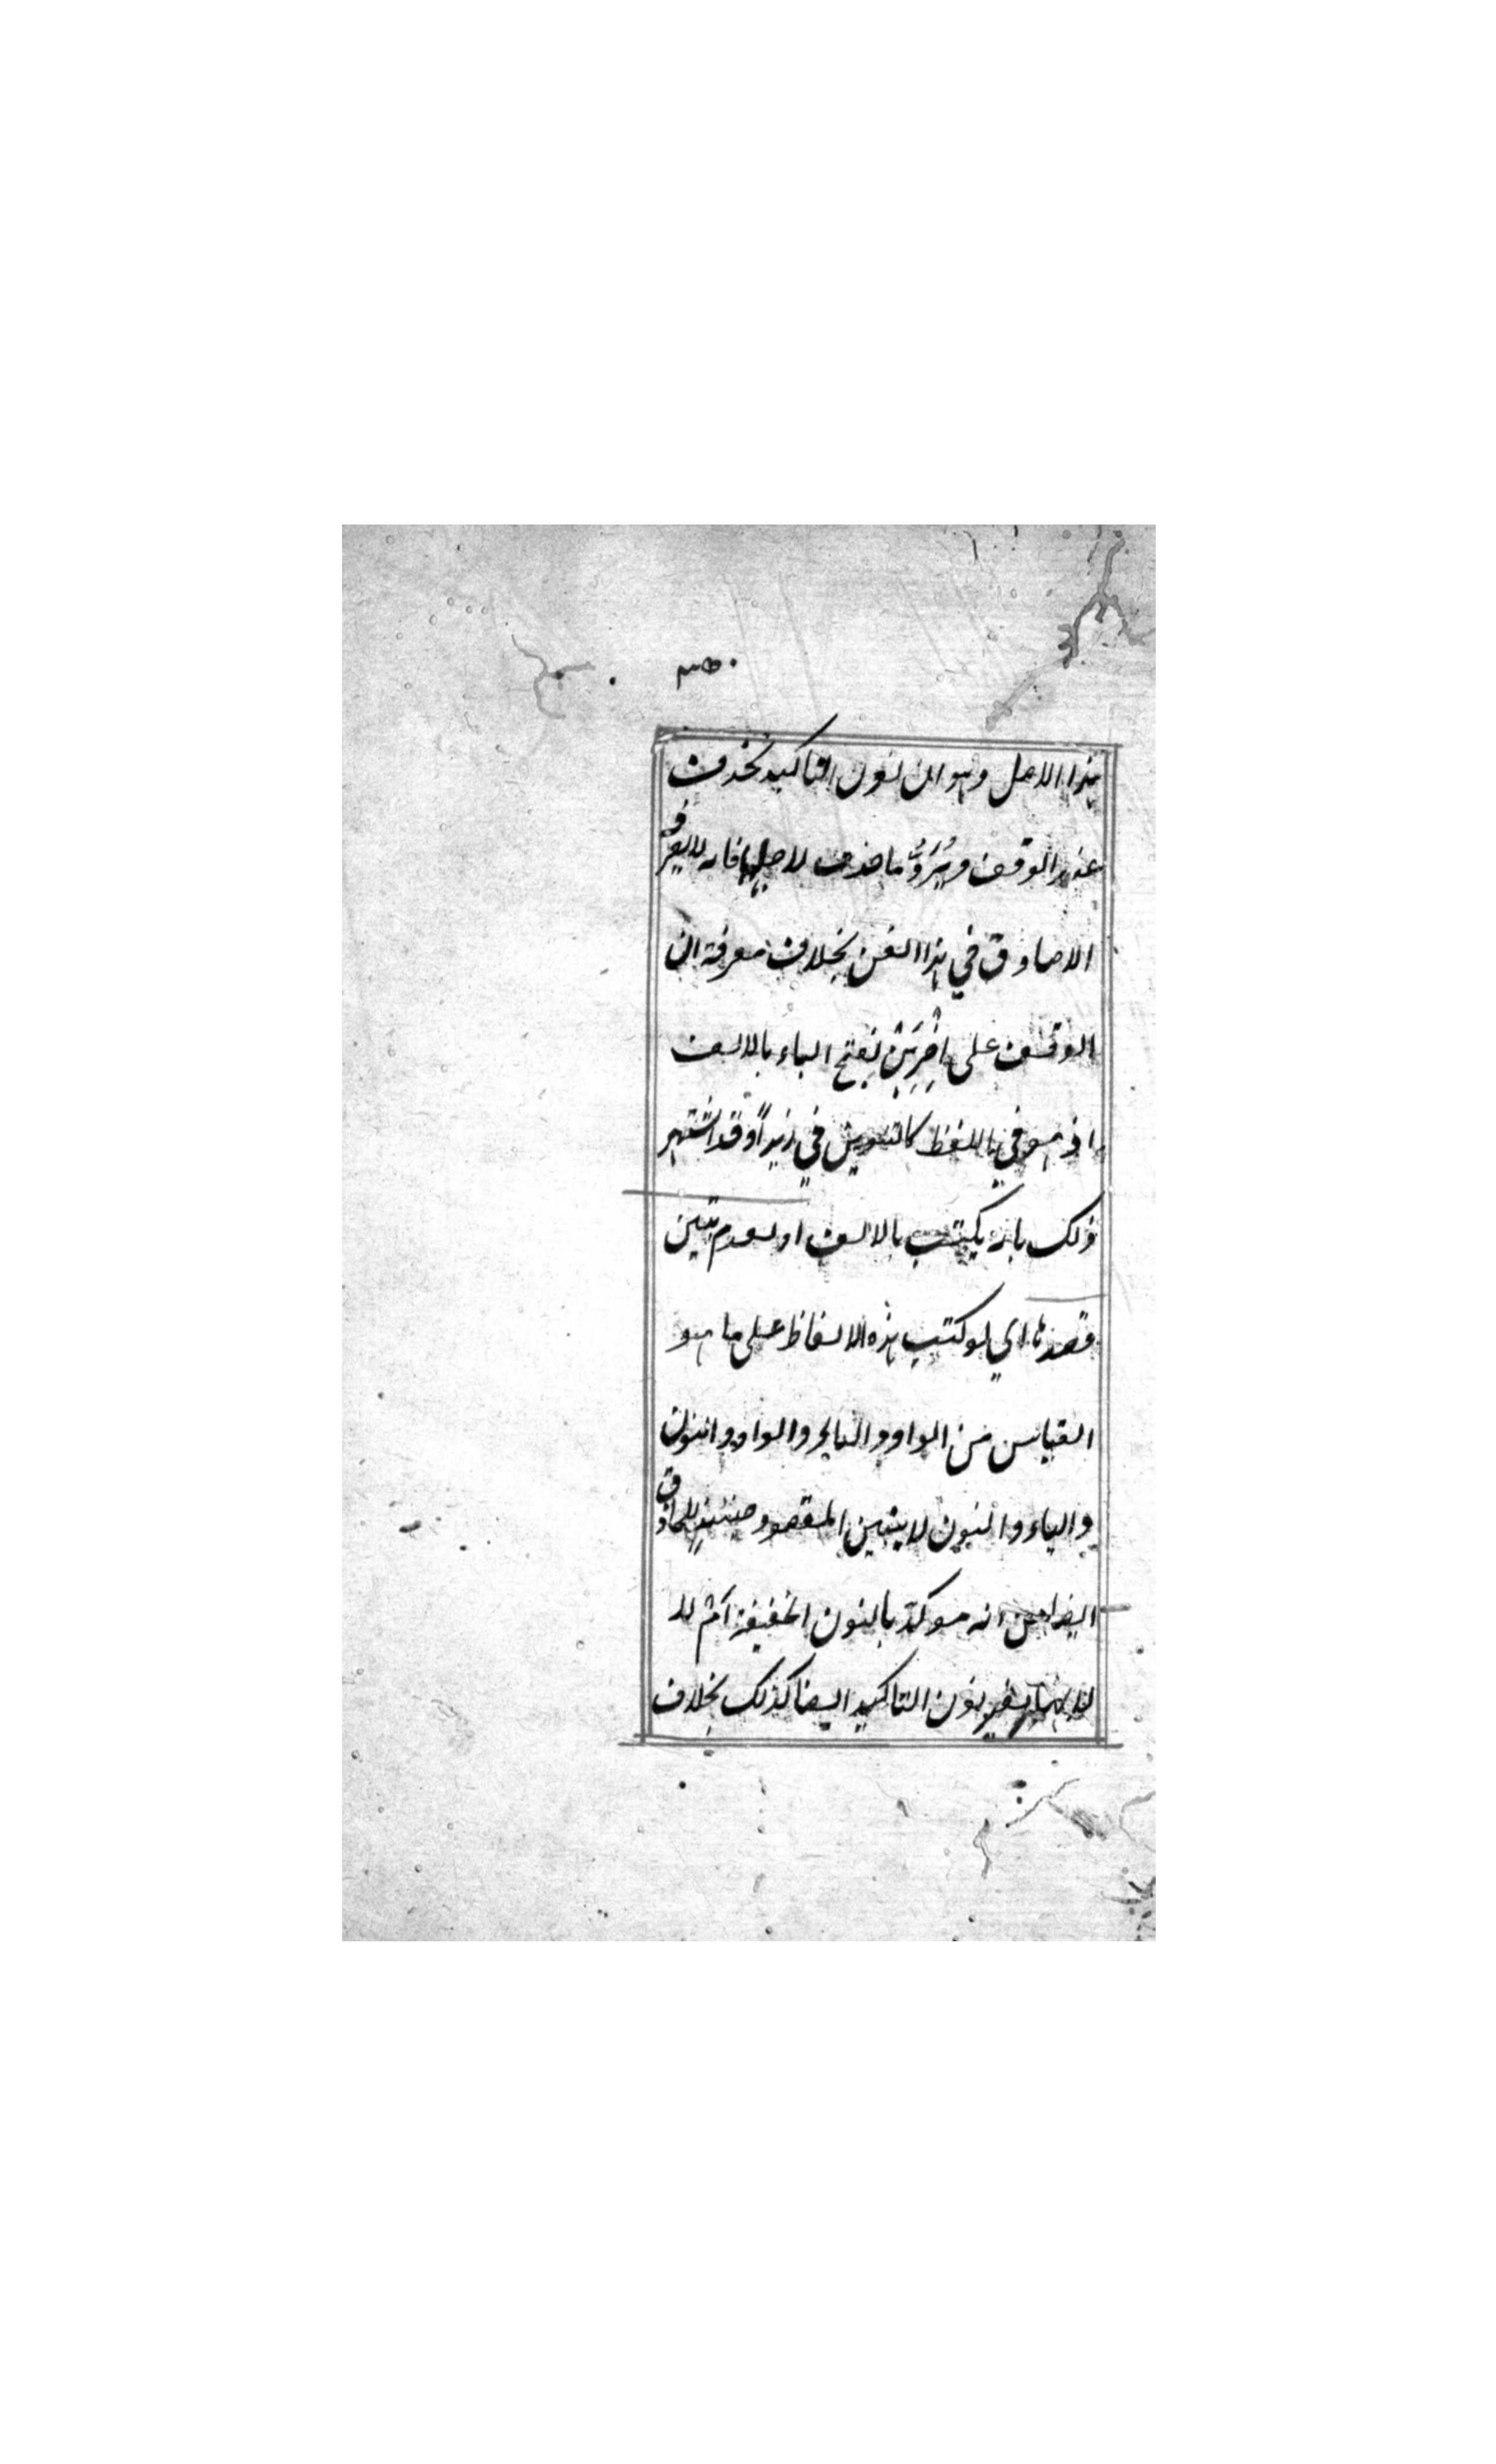 ٣٥٠
هذا الاصل وهو ان نون التاكيد تحذف
عند الوقف ويُرَدُّ ما حذف لاجلها فانه لا يعرف
الا حاذق في هذا الفن بخلاف معرفة ان
الوقف على اِضْرِبَنْ بفتح الباء بالالف
اذ هو في اللفظ كالتنوين في زيداً وقد اشتهر
ذلك بانه يكتب بالالف او لعدم تبين
قصدها اي لو كتب هذه الالفاظ على ما هو
القياس من الواو والالف والواو والنون
والياء والنون لا يتبين المقصود حينئذٍ للحاذق
ايضا من انه موكد بالنون الخفيفة ام لا
نون التاكيد ايضا كذلك بخلاف